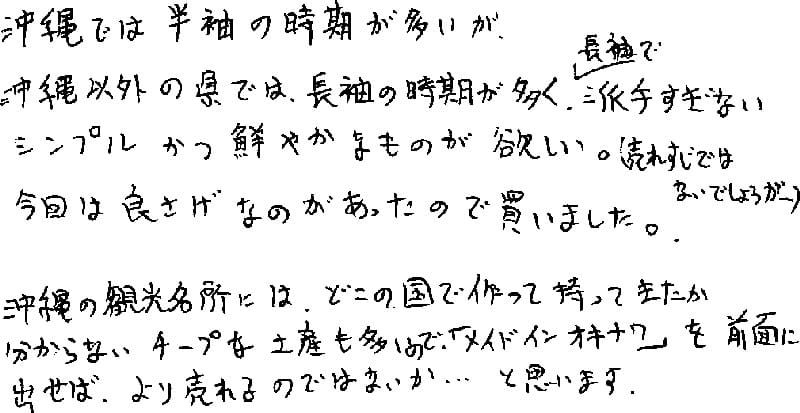 沖縄では半袖の時期が多いが、
沖縄以外の県では、長袖の時期が多く、長袖で派手すぎない
シンプルかつ鮮やかなものが欲しい。(売れすじでは
ないでしょうがー)
今回は良さげなのがあったので買いました。
沖縄の観光名所には、どこの国で作って持ってきたか
分からないチープな土産も多いので、「メイドインオキナワ」を前面に
出せば、より売れるのではないか…と思います。